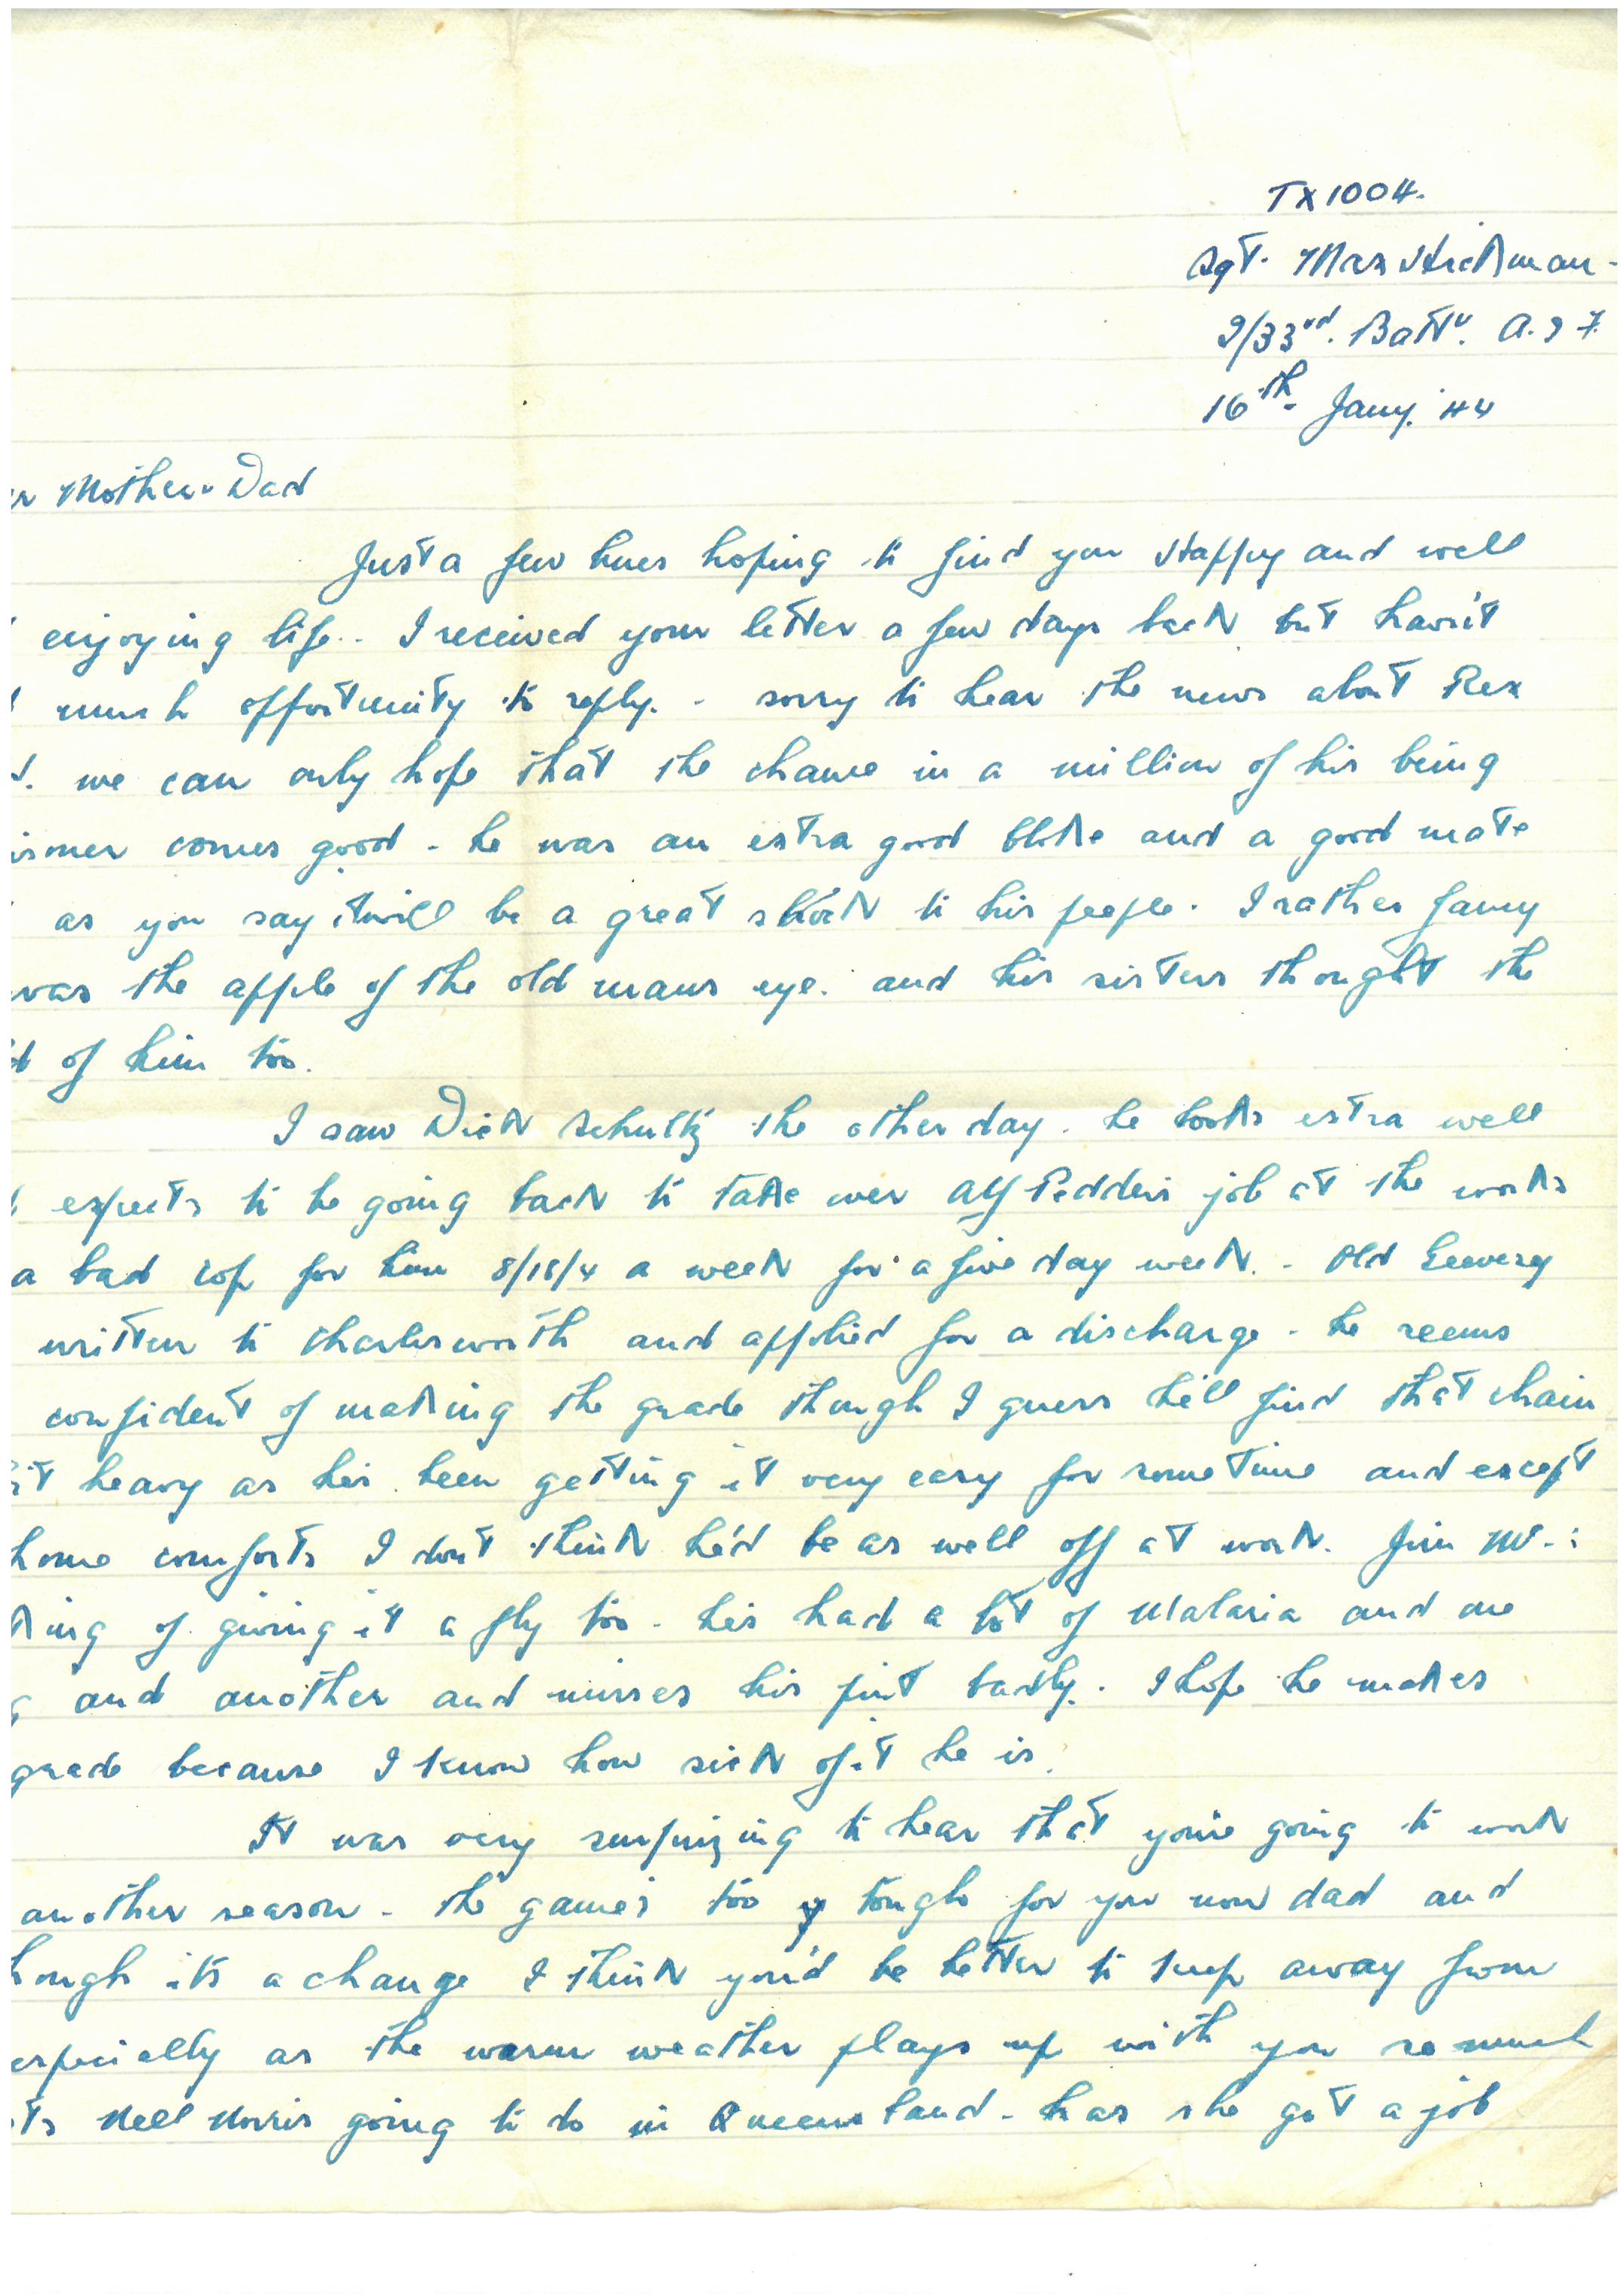 TX1004.
Sgt. Max Hickman.
2/33rd. Battn. A.I.F.
16th. Jany. 44
Mother & Dad
Just a few lines hoping to find you Happy and well
enjoying life. I received your letter a few days back but hav'nt
much opportunity to reply. - sorry to hear the news about Rex
we can only hope that the chance in a million of his being
isoner comes good - he was an extra good bloke and a good mate
as you say twill be a great shock to his people. I rather fancy
was the apple of the old mans eye. and his sisters thought the
of him too.
I saw Dick Schultz the other day. he looks extra well
expects to be going back to take over Alf Pedder's job at the works
a bad cop for him 8/18/4 a week for a five day week. - Old
written to Charlesworth and applied for a discharge - he seems
confident of making the grade though I guess he'll find that chain
it heavy as he's been getting it very easy for some time and except
home comforts I don't think he'd be as well off at work. Jim Mc.
king of giving it a fly too - he's had a lot of Malaria and one
g and another and misses his pint badly. I hope he makes
grade because I know how sick of it he is.
It was very surprizing to hear that you're going to work
another season - the game's too tough for you now dad and
hough its a change I think you'd be better to keep away from
especially as the warm weather plays up with you so much
ts Nell Norris going to do in Queensland - has she got a job